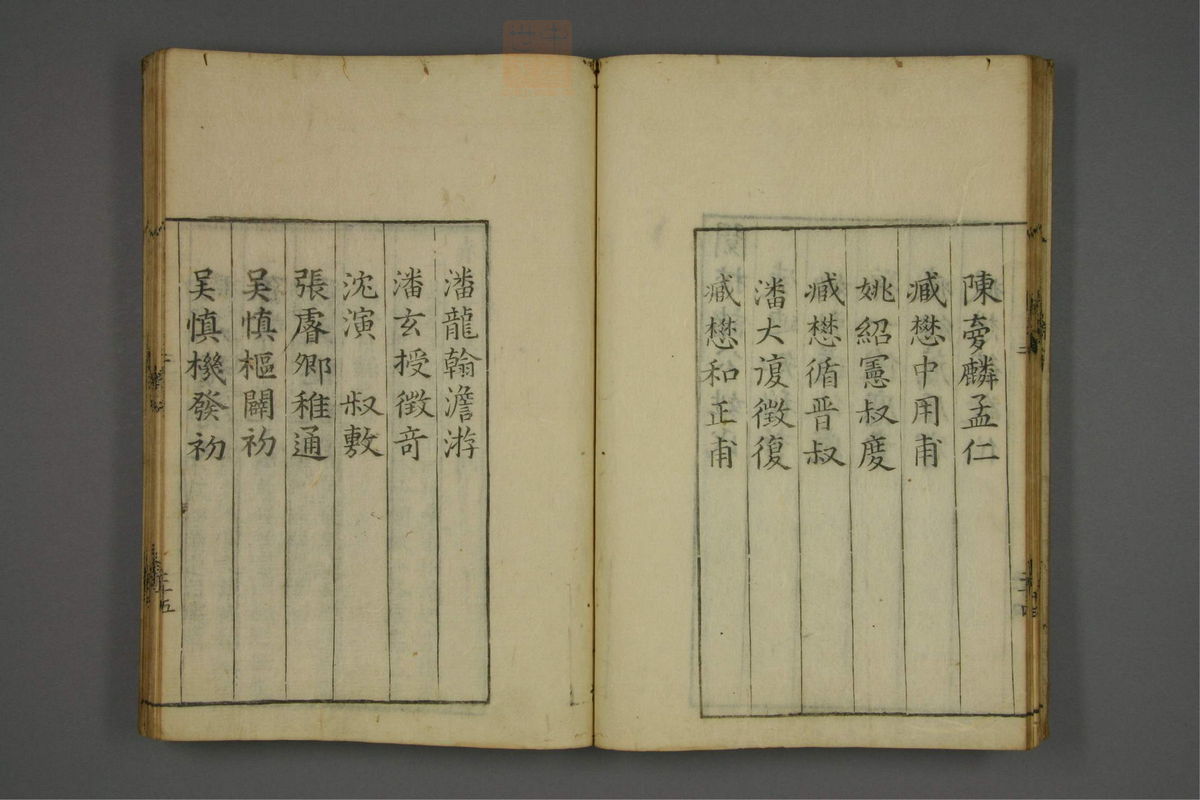 陳夢麟孟仁
臧懋中用甫
姚紹憲叔度
臧懋循晋叔
潘大復徵復
臧懋和正甫
潘龍翰澹游
潘玄授徵奇
沈演 叔敷
張睿卿稚通
吴慎樞闢初
吴慎機發初